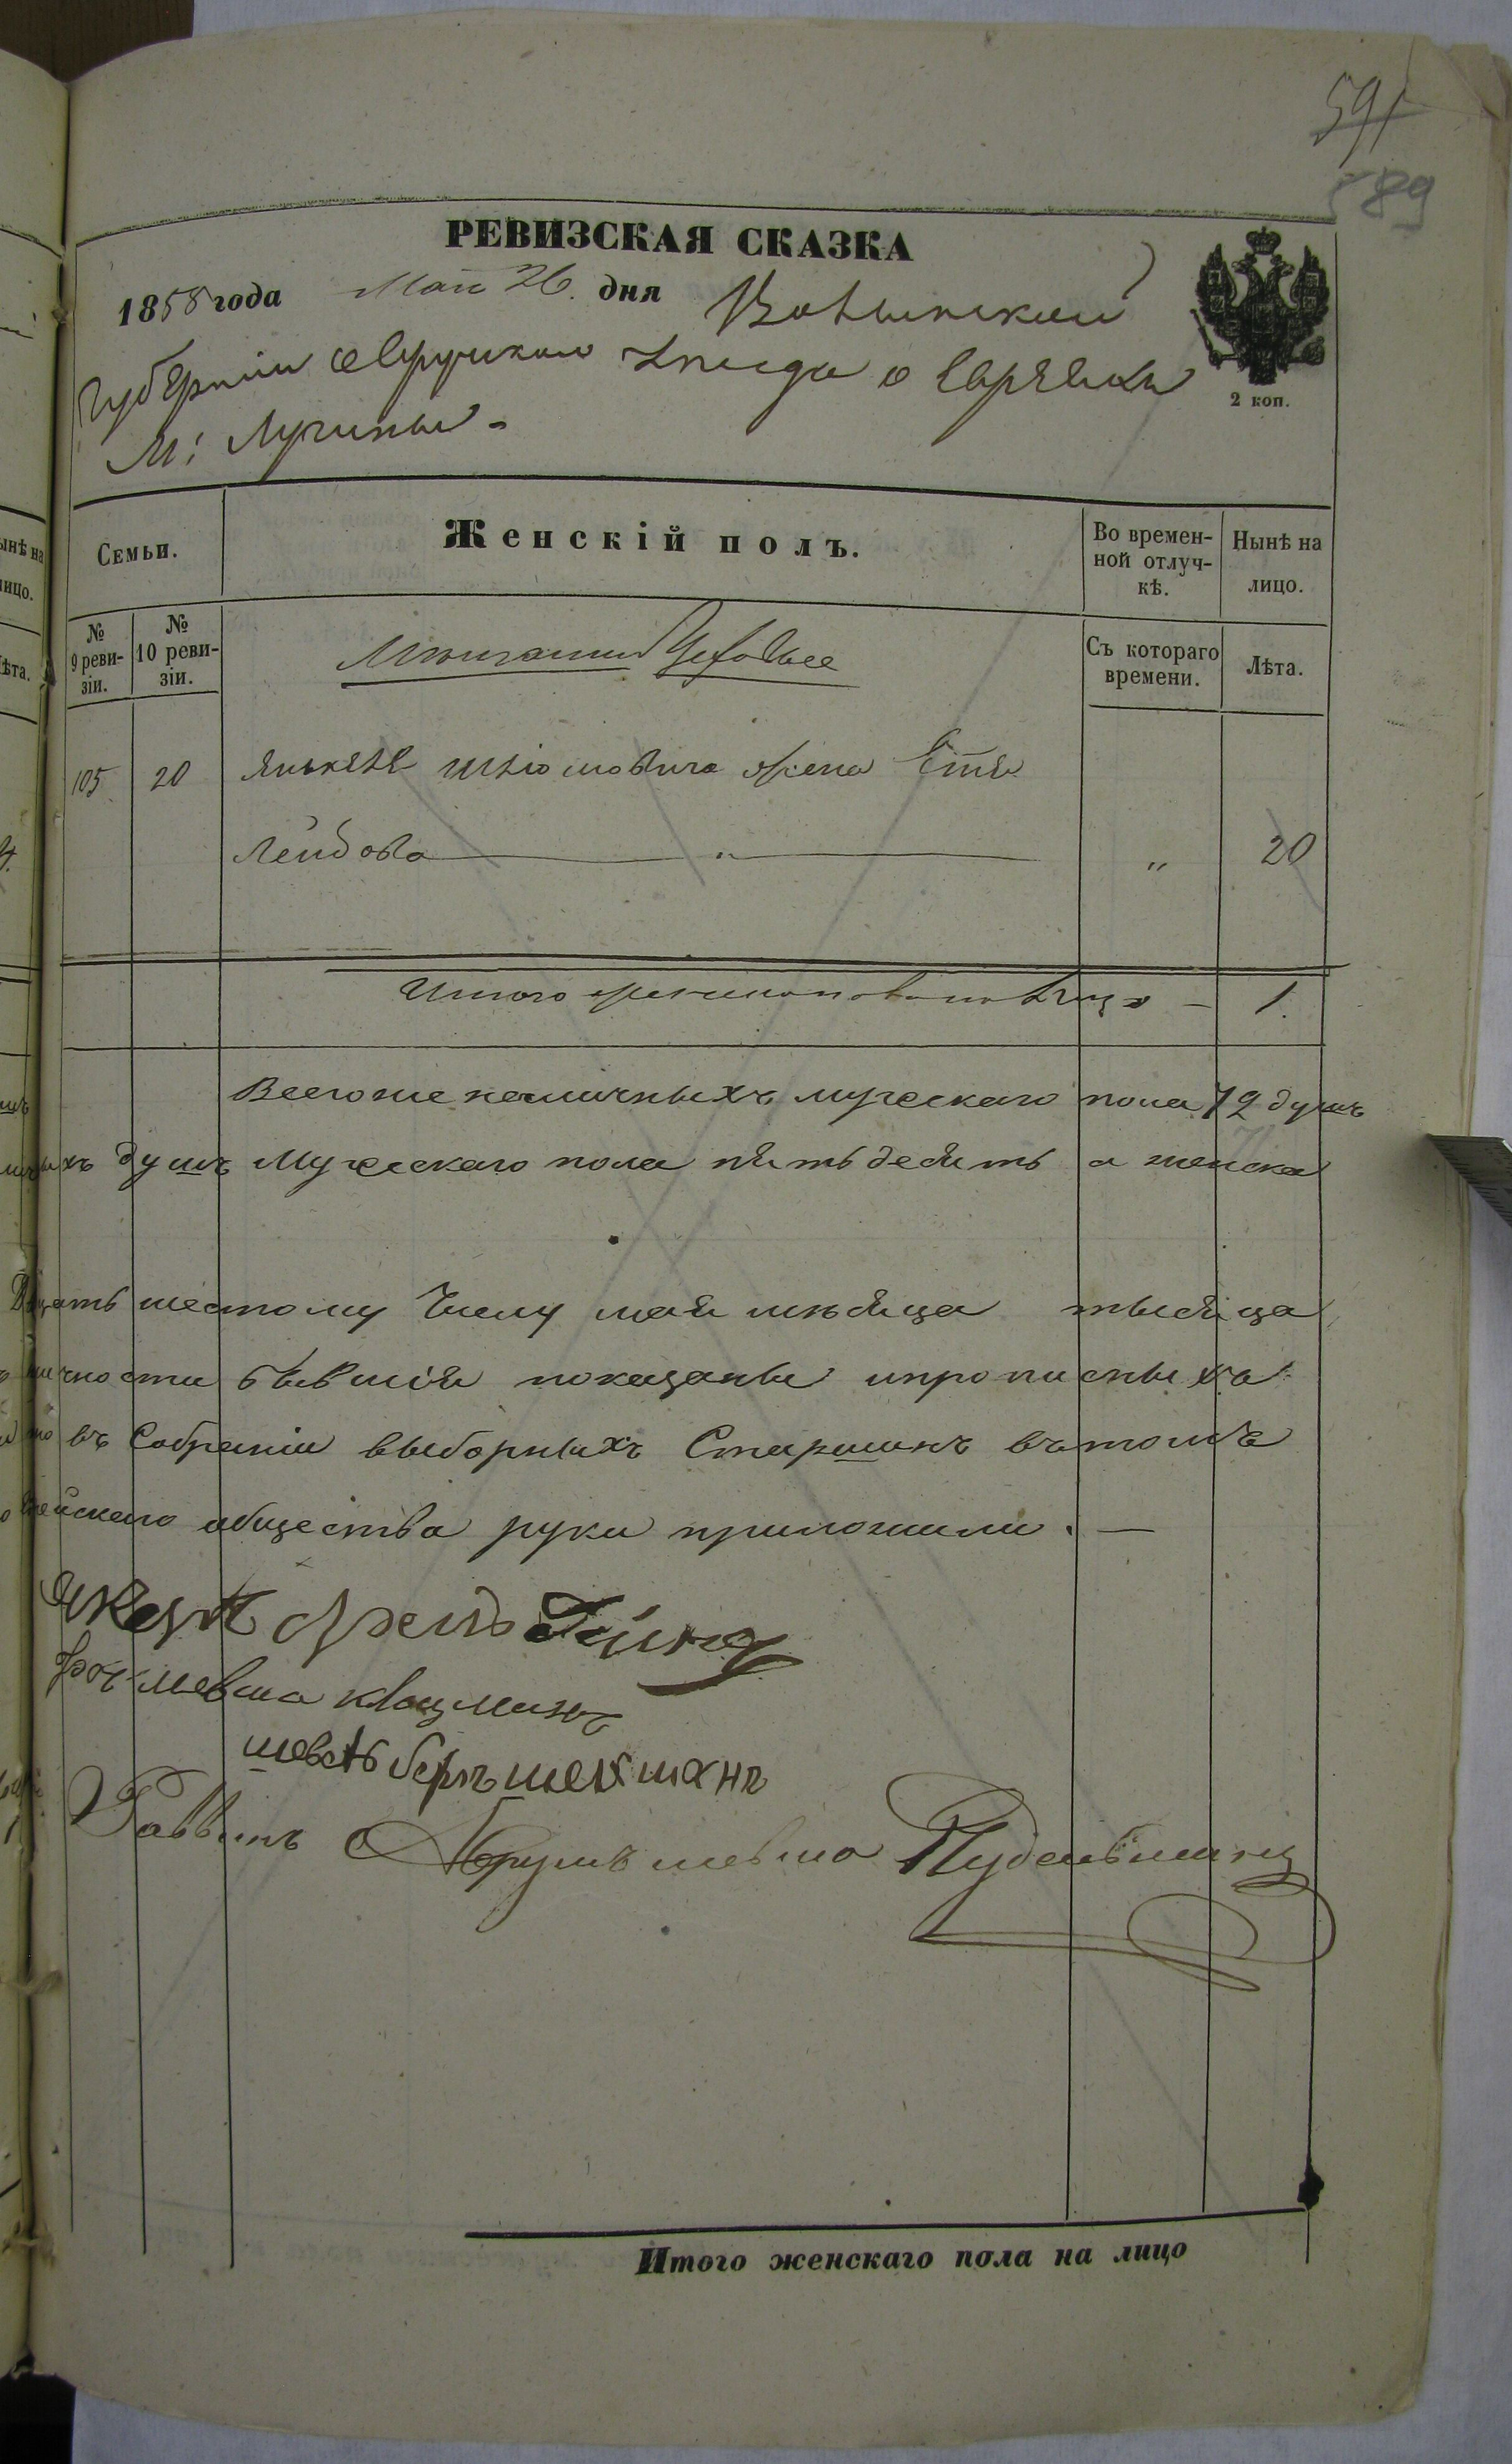 591
589
РЕВИЗСКАЯ СКАЗКА
1858 года Мая 26. дня Волынской
Губерніи Овручскаго уезда о Евреяхъ
М: Лугины.
2 коп.
Семьи.
Женскій полъ.
Во времен-
ной отлуч-
кѣ.
Нынѣ на
лицо.
№
9 реви-
зіи.
№
10 реви-
зіи.
Мѣщане Цеховые
Съ котораго
времени.
Лѣта.
105 20 Янкеля Шліомовича жена Етя
Лейбова " " 20
Итого женскаго пола на лицо - 1.
Всего же наличныхъ мужескаго пола 72 душъ
душъ Мужескаго пола пятьдесятъ а женска
шестому Числу мая мѣсяца тысяца
бывшія показаны и прописныхъ
въ Собраніи выборныхъ Старшинъ въ томъ
общества руки приложили. —
шевель беръ шекманъ
Раввинъ Абрумъ шевма
Итого женскаго пола на лицо